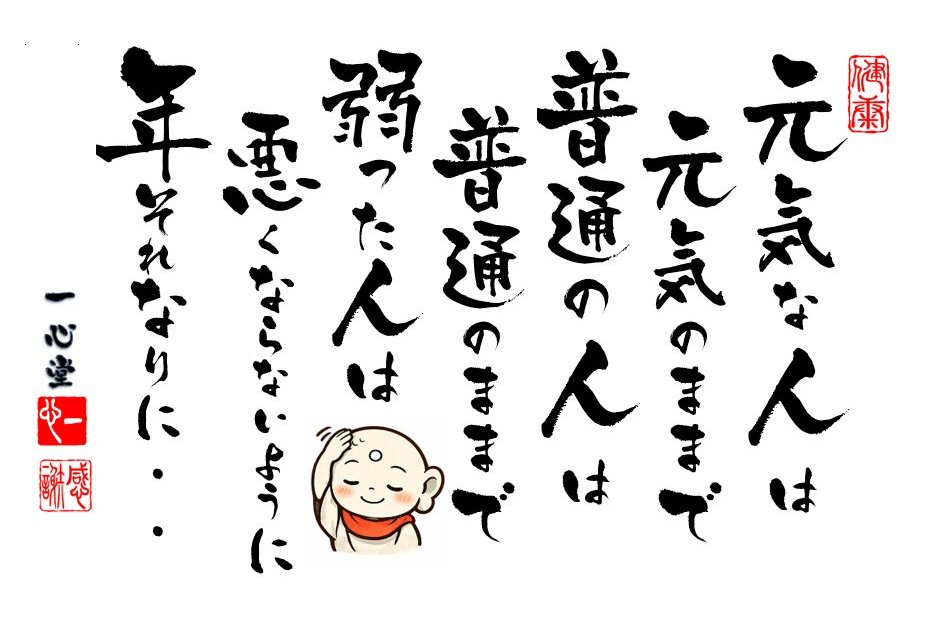 健康
元気な人は
元気のままで
普通の人は
普通のままで
弱った人は
悪くならないように
年それなりに・・
一心堂
一心
感謝